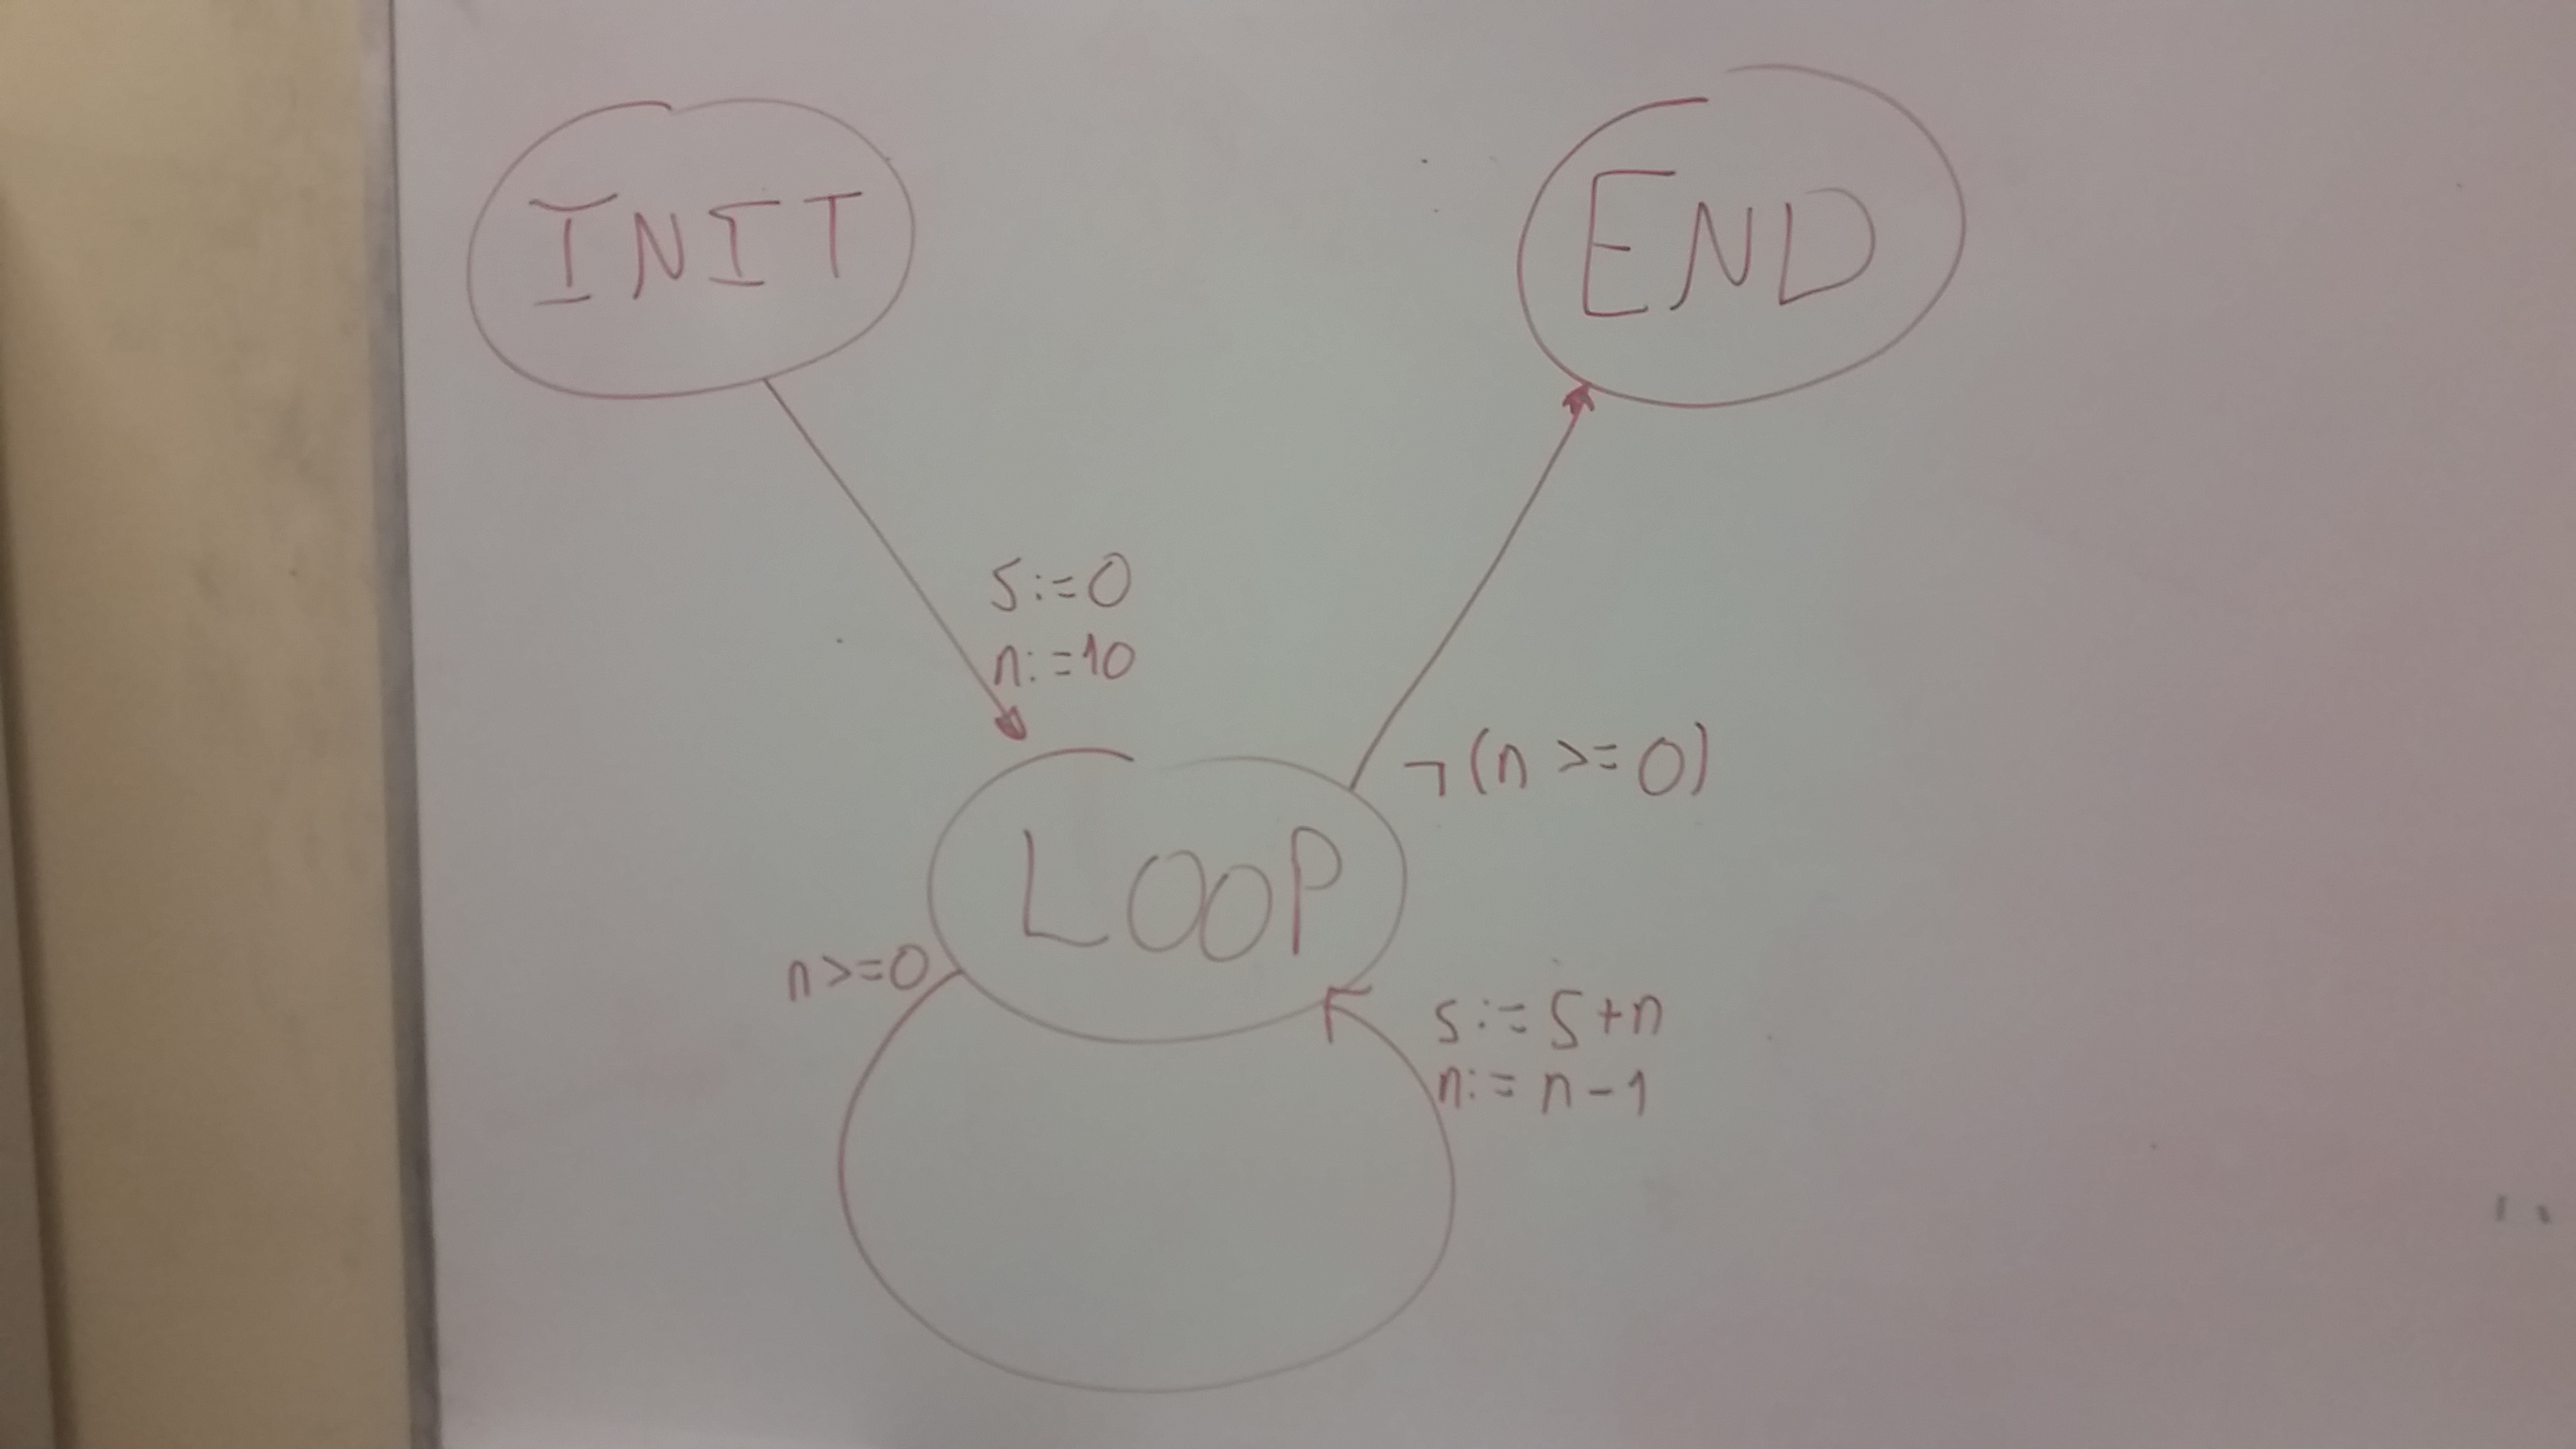 INIT
END
s:=0
n:=10
¬(n >= 0)
LOOP
n>=0
s:= s+n
n:= n-1